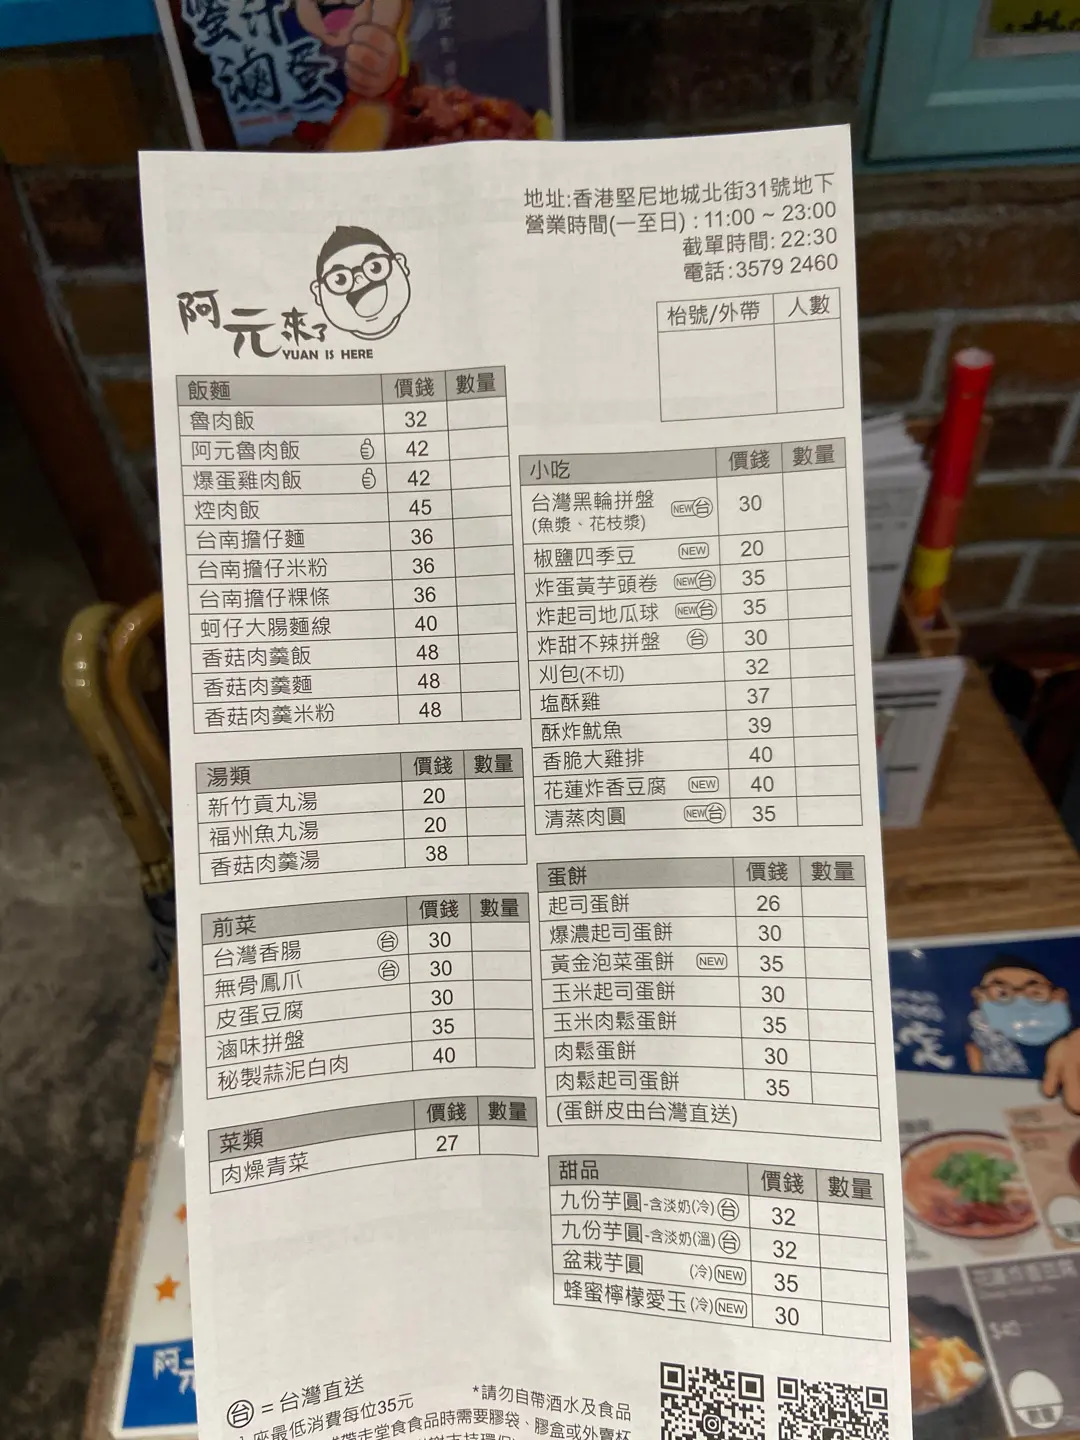 滷蛋
地址:香港堅尼地城北街31號地下
營業時間(一至日) : 11:00 ~ 23:00
截單時間: 22:30
電話:3579 2460
阿元來了
YUAN IS HERE
枱號/外帶 人數
飯麵 價錢 數量
魯肉飯 32
阿元魯肉飯 42
爆蛋雞肉飯 42
焢肉飯 45
台南擔仔麵 36
台南擔仔米粉 36
台南擔仔粿條 36
蚵仔大腸麵線 40
香菇肉羹飯 48
香菇肉羹麵 48
香菇肉羹米粉 48
湯類 價錢 數量
新竹貢丸湯 20
福州魚丸湯 20
香菇肉羹湯 38
前菜 價錢 數量
台灣香腸 台 30
無骨鳳爪 台 30
皮蛋豆腐 30
滷味拼盤 35
秘製蒜泥白肉 40
菜類 價錢 數量
肉燥青菜 27
小吃 價錢 數量
台灣黑輪拼盤 NEW 台 30
(魚漿、花枝漿)
椒鹽四季豆 NEW 20
炸蛋黃芋頭卷 NEW 台 35
炸起司地瓜球 NEW 台 35
炸甜不辣拼盤 台 30
刈包(不切) 32
塩酥雞 37
酥炸魷魚 39
香脆大雞排 40
花蓮炸香豆腐 NEW 40
清蒸肉圓 NEW 台 35
蛋餅 價錢 數量
起司蛋餅 26
爆濃起司蛋餅 30
黃金泡菜蛋餅 NEW 35
玉米起司蛋餅 30
玉米肉鬆蛋餅 35
肉鬆蛋餅 30
肉鬆起司蛋餅 35
(蛋餅皮由台灣直送)
甜品 價錢 數量
九份芋圓-含淡奶(冷) 台 32
九份芋圓-含淡奶(溫) 台 32
盆栽芋圓 (冷) NEW 35
蜂蜜檸檬愛玉 (冷) NEW 30
台 = 台灣直送
*請勿自帶酒水及食品
座最低消費每位35元
帶走堂食食品時需要膠袋、膠盒或外賣杯